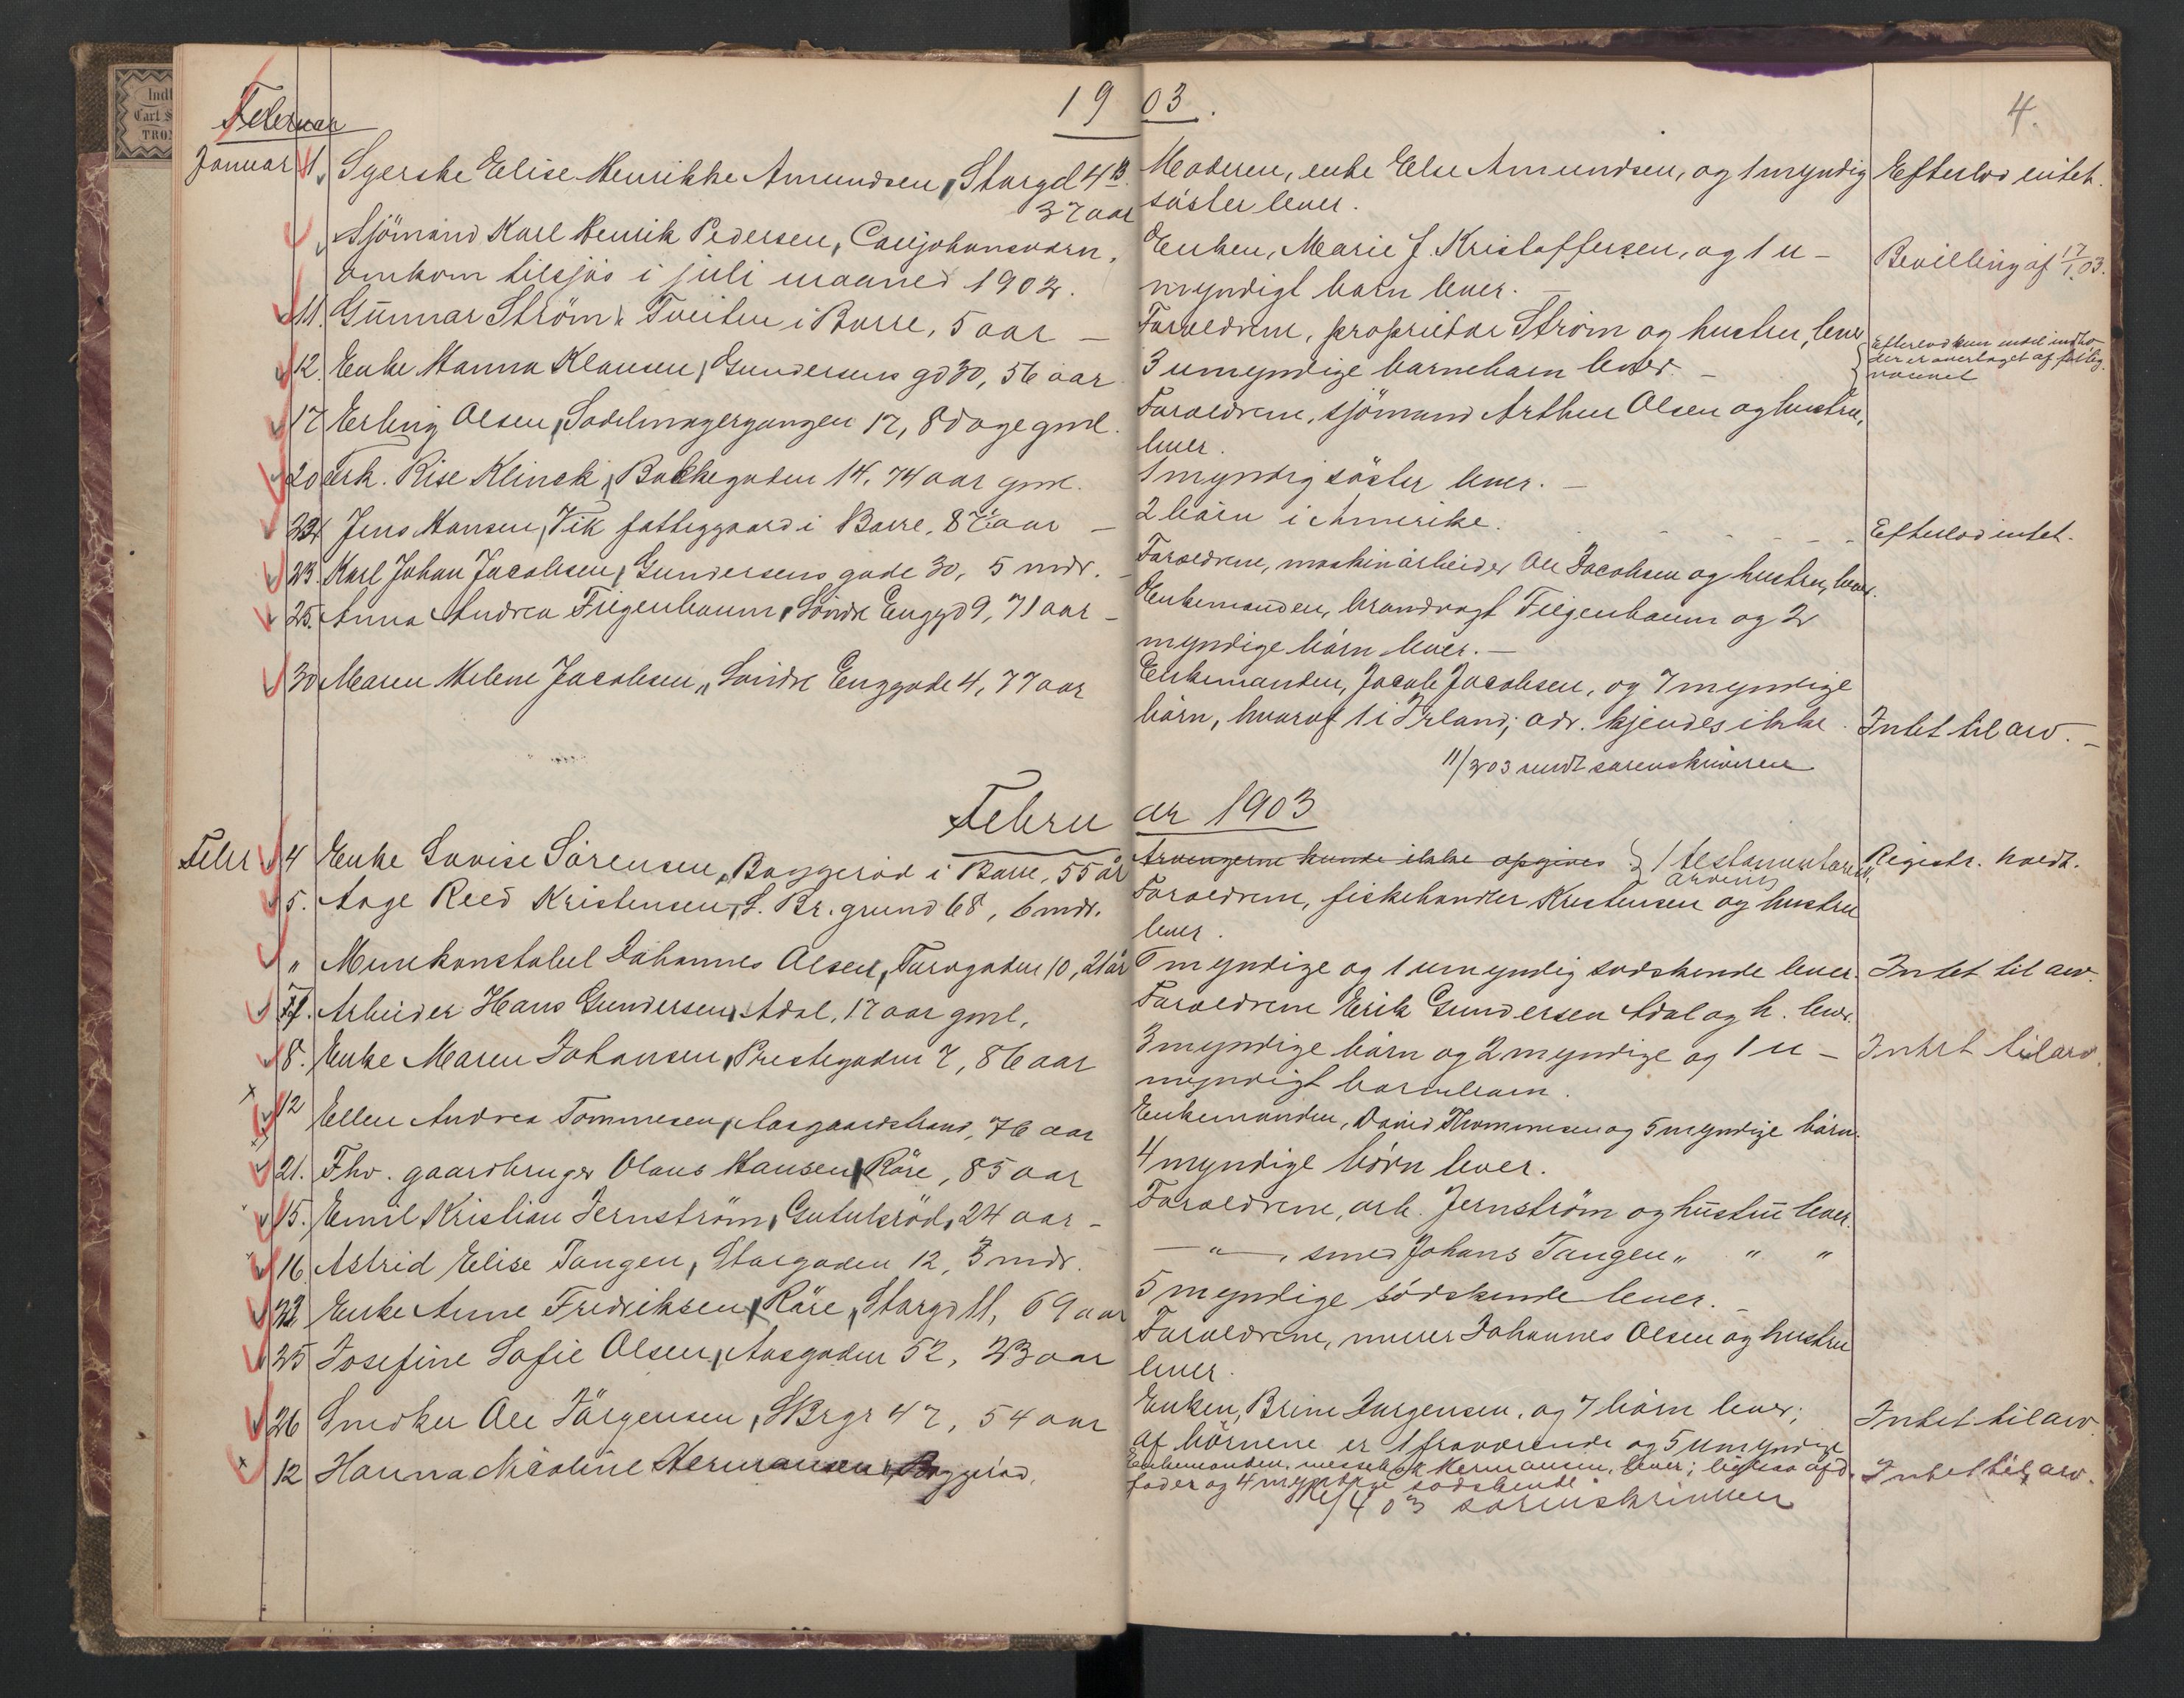 Februar
1903.
4.
Januar 1. Syerske Elise Henrikke Amundsen, Storgd 4B. Moderen, enke Else Amundsen, og 1 myndig Efterlod intet.
37 aar söster lever.
Sjömand Karl Henrik Pedersen, Carljohansværn, Enken, Marie J. Kristoffersen, og 1 u- Bevilling af 17/1 03.
omkom tilsjös i juli maaned 1902. myndigt barn lever. —
11. Gunnar Ström, Tveiten i Borre, 5 aar — Forældrene, proprietær Ström og hustru, lever
12. Enke Hanna Klausen, Gundersens gd 30, 56 aar 3 umyndige barnebarn lever. — Efterlod kun endel indbo
der er overtaget af fattig-
væsenet
17 Erling Olsen, Sadelmagergangen 17, 8 dage gml. Forældrene, sjömand Arthur Olsen og hustru,
lever.
20 Frk. Rise Klinck, Bakkegaden 14, 74 aar gml. 1 myndig söster lever. —
Jens Hansen, Vik fattiggaard i Borre, aar — 2 börn i Amerika. Efterlod intet.
23. Karl Johan Jacobsen, Gundersens gade 30, 5 mdr. — Forældrene, maskinarbeider Ole Jacobsen og hustru, lever.
25. Anna Andrea Fiegenbaum, Söndre Enggd 9, 71 aar — Enkemanden, brandvagt Fiegenbaum og 2
myndige börn lever. —
30 Maren Helene Jacobsen, Söndre Enggade 4, 77 aar Enkemanden, Jacob Jacobsen, og 7 myndige
börn, hvoraf 1 i Irland; adr. kjendes ikke. Intet til arv. —
11/2 03 sendt sorenskriveren
Februar 1903
Febr 4 Enke Lovise Sörensen, Baggeröd i Borre, 55 år Arvingerne kunde ikke opgives } 1 testamentarisk Registr. holdt.
arving
5. Aage Reed Kristensen, S. Br. grund 68, 6 mdr. Forældrene, fiskehandler Kristensen og hustru
lever.
" Minekonstabel Johannes Olsen, Torvgaden 10, 21 år 6 myndige og 1 umyndig södskende lever. Intet til arv.
7. Arbeider Hans Gundersen, Adal, 17 aar gml. Forældrene Erik Gundersen Adal og h. lever.
8. Enke Maren Johansen, Prestegaden 7, 86 aar 3 myndige börn og 2 myndige og 1 u- Intet til arv.
myndigt barnebarn.
12 Ellen Andrea Tommesen, Aasgaardstrand, 76 aar Enkemanden, David Thommesen og 5 myndige börn.
21. Fhv. gaardbruger Olaus Hansen, Röre, 85 aar 4 myndige börn lever.
15. Emil Kristian Jernström, Gutulsröd, 24 aar — Forældrene, arb. Jernström og hustru lever.
16. Astrid Elise Tangen, Storgaden 12, 3 mdr. — " —, smed Johans Tangen " " "
23 Enke Anne Fredriksen, Röre, Storgd 11, 69 aar 5 myndige södskende lever. —
25 Josefine Sofie Olsen, Aasgaden 52, 23 aar Forældrene, murer Johannes Olsen og hustru
lever.
26 Snedker Ole Jörgensen, S Br gr 47, 54 aar Enken, Brine Jörgensen, og 7 börn lever; Intet til arv.
af börnene er 1 fraværende og 5 umyndige
12 Hanna Nicoline Hermansen, Baggeröd. Enkemanden, Hermansen, lever; ligesaa afd. Intet til arv.
fader og 4 myndige södskende
/4 03 sorenskriveren